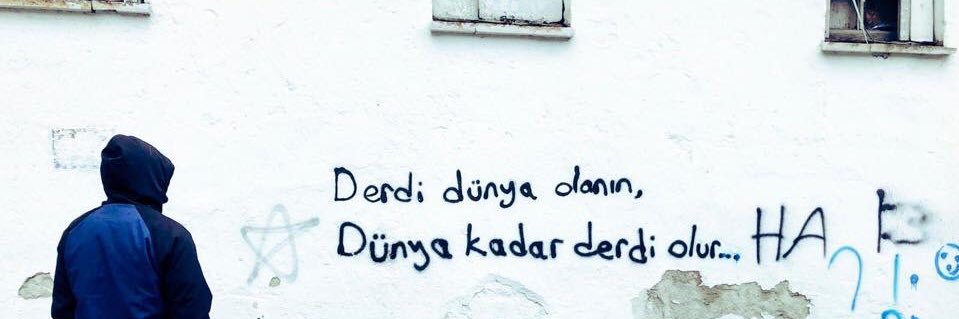 Derdi dünya olanın,
Dünya kadar derdi olur...
HA